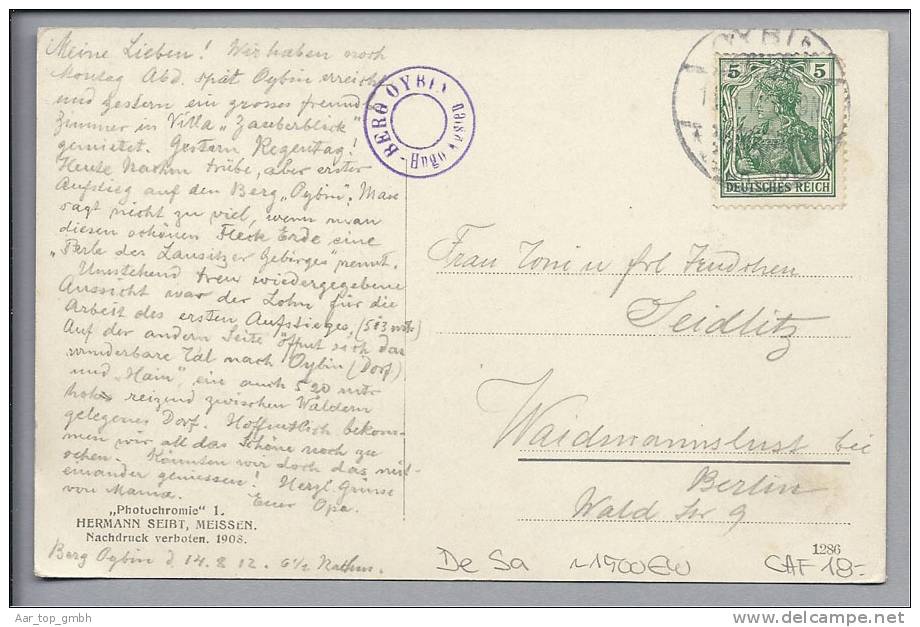 Meine Lieben! Wir haben noch
Montag Abd. spät Oybin erreicht
und gestern ein grosses freund-
zimmer in Villa „Zauberblick"
gemietet. Gestern Regentag!
Heute Nachm trübe, aber erster
Aufstieg auf den Berg „Oybin". Man
sagt nicht zu viel, wenn man
diesen schönen Fleck Erde eine
„Perle des Lausitzer Gebirges" nennt.
Umstehend treu wiedergegebene
Aussicht war der Lohn für die
Arbeit des ersten Aufstieges, (513 mtr)
Auf der andern Seite öffnet sich das
wunderbare Tal nach Oybin (Dorf)
und „Hain", ein auch 520 mtr
hoh reizend zwischen Wäldern
gelegenes Dorf. Hoffentlich bekom-
men wir all das Schöne noch zu
sehen. Könnten wir doch das mit-
einander geniessen! Herzl. Grüsse
von Mama. Euer Opa.
„Photochromie" 1.
HERMANN SEIBT, MEISSEN.
Nachdruck verboten. 1908.
Berg Oybin d. 14.8.12. 6½ Nachm.
BERG OYBIN
Hugo
OYBIN
5 5
DEUTSCHES REICH
Frau Toni u frl Trudchen
Seidlitz
Waidmannslust bei
Berlin
Wald Str 9
1286
De Sa ~1900EW CHF 18.-
Aar_top_gmbh
http://www.delcampe.net